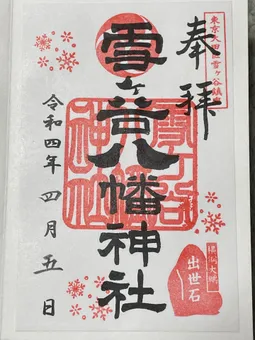 東京大田区雪ヶ谷鎮
奉拝
雪ヶ谷八幡神社
雪ヶ谷
神社
出世石
令和四年四月五日